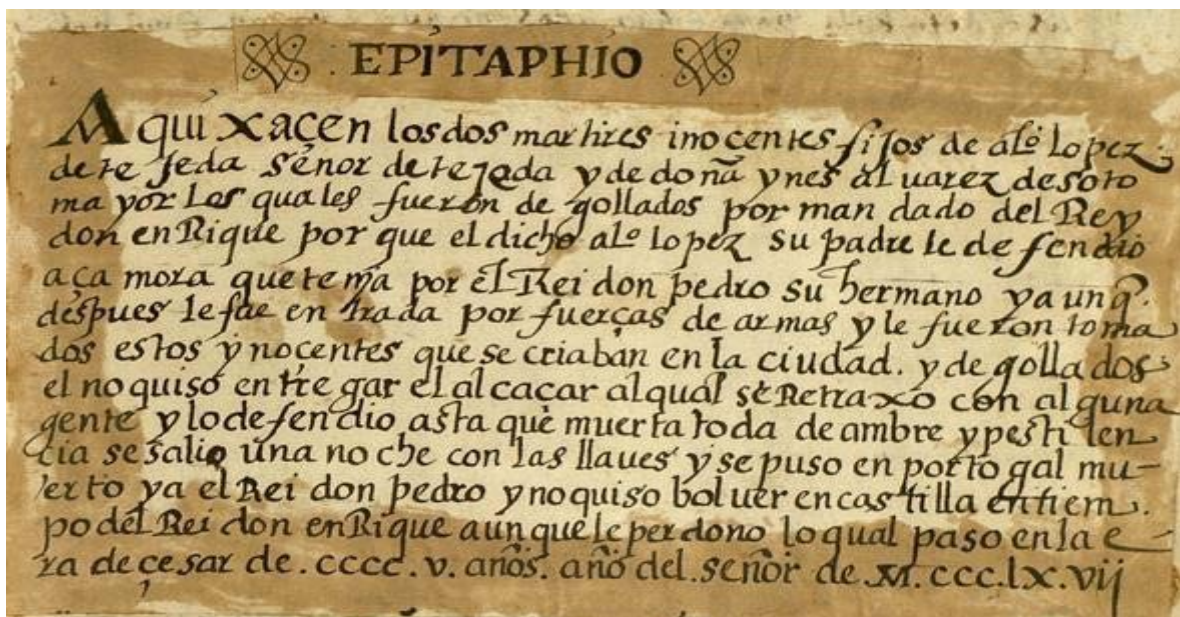 EPITAPHIO
Aqui xaçen los dos martires inocentes fijos de alº lopez
de te jeda señor de tejeda y de doña ynes aluarez de soto
mayor los quales fueron de gollados por man dado del Rey
don enRique por que el dicho alº lopez su padre le de fendio
a ça mora que tenia por el Rei don pedro su hermano y a un q.
despues le fue en trada por fuerças de armas y le fueron toma
dos estos ynocentes que se criaban en la ciudad. y de gollados
el no quiso en tre gar el al caçar al qual se Retraxo con alguna
gente y lo de fendio asta que muerta toda de ambre y pesti len
cia se salio una no che con las llaves y se puso en porto gal mu-
erto ya el Rei don pedro y no quiso boluer en cas tilla en tiem
po del Rei don enRique aun que le per dono lo qual paso en la e-
ra de çesar de .cccc.v. años. año del señor de M.ccc.lx.vij